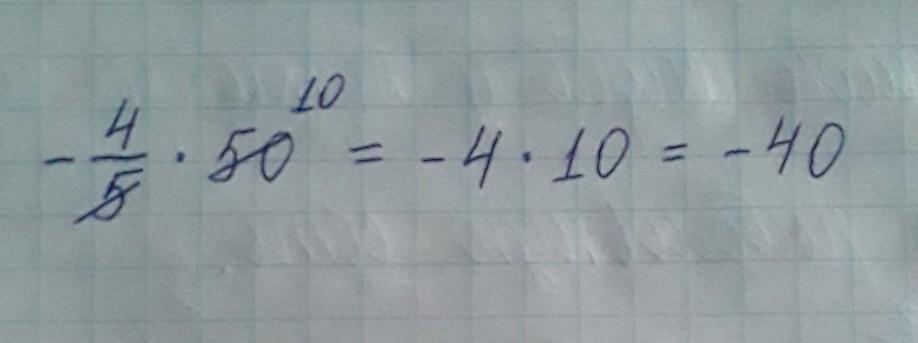 -4/5 · 50 10 = -4 · 10 = -40